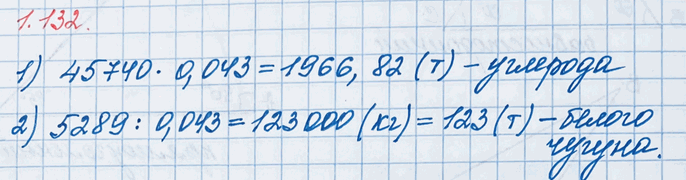 1.132.
1) 45740 · 0,043 = 1966,82 (т) – углерода
2) 5289 : 0,043 = 123000 (кг) = 123 (т) – белого
чугуна.